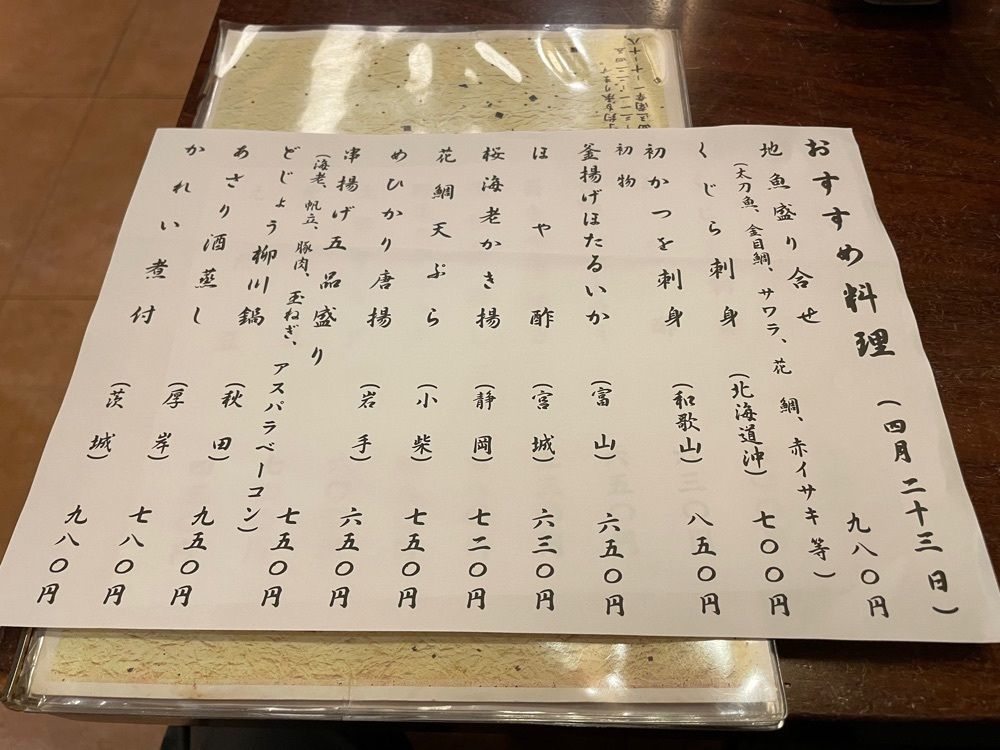 おすすめ料理 (四月二十三日)
地魚盛り合せ 九八〇円
(太刀魚、金目鯛、サワラ、花鯛、赤イサキ等)
くじら刺身 (北海道沖) 七〇〇円
初かつを刺身 (和歌山) 八五〇円
初物
釜揚げほたるいか (富山) 六五〇円
ほや酢 (宮城) 六三〇円
桜海老かき揚 (静岡) 七二〇円
花鯛天ぷら (小柴) 七五〇円
めひかり唐揚 (岩手) 六五〇円
串揚げ五品盛り 七五〇円
(海老、帆立、豚肉、玉ねぎ、アスパラベーコン)
どじょう柳川鍋 (秋田) 九五〇円
あさり酒蒸し (厚岸) 七八〇円
かれい煮付 (茨城) 九八〇円